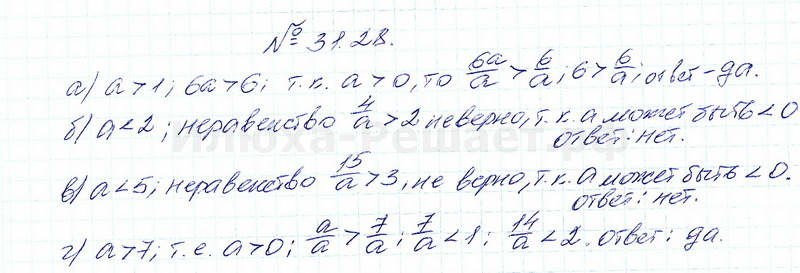 № 31.28.
а) a > 1; 6a > 6; т.к. a > 0, то 6a/a > 6/a; 6 > 6/a; ответ - да.
б) a < 2; неравенство 4/a > 2 неверно, т.к. a может быть < 0
ответ: нет.
в) a < 5; неравенство 15/a > 3, не верно, т.к. a может быть < 0.
ответ: нет.
г) a > 7; т.е. a > 0; a/a > 7/a; 7/a < 1; 14/a < 2. ответ: да.
Илюха-Решает.рф